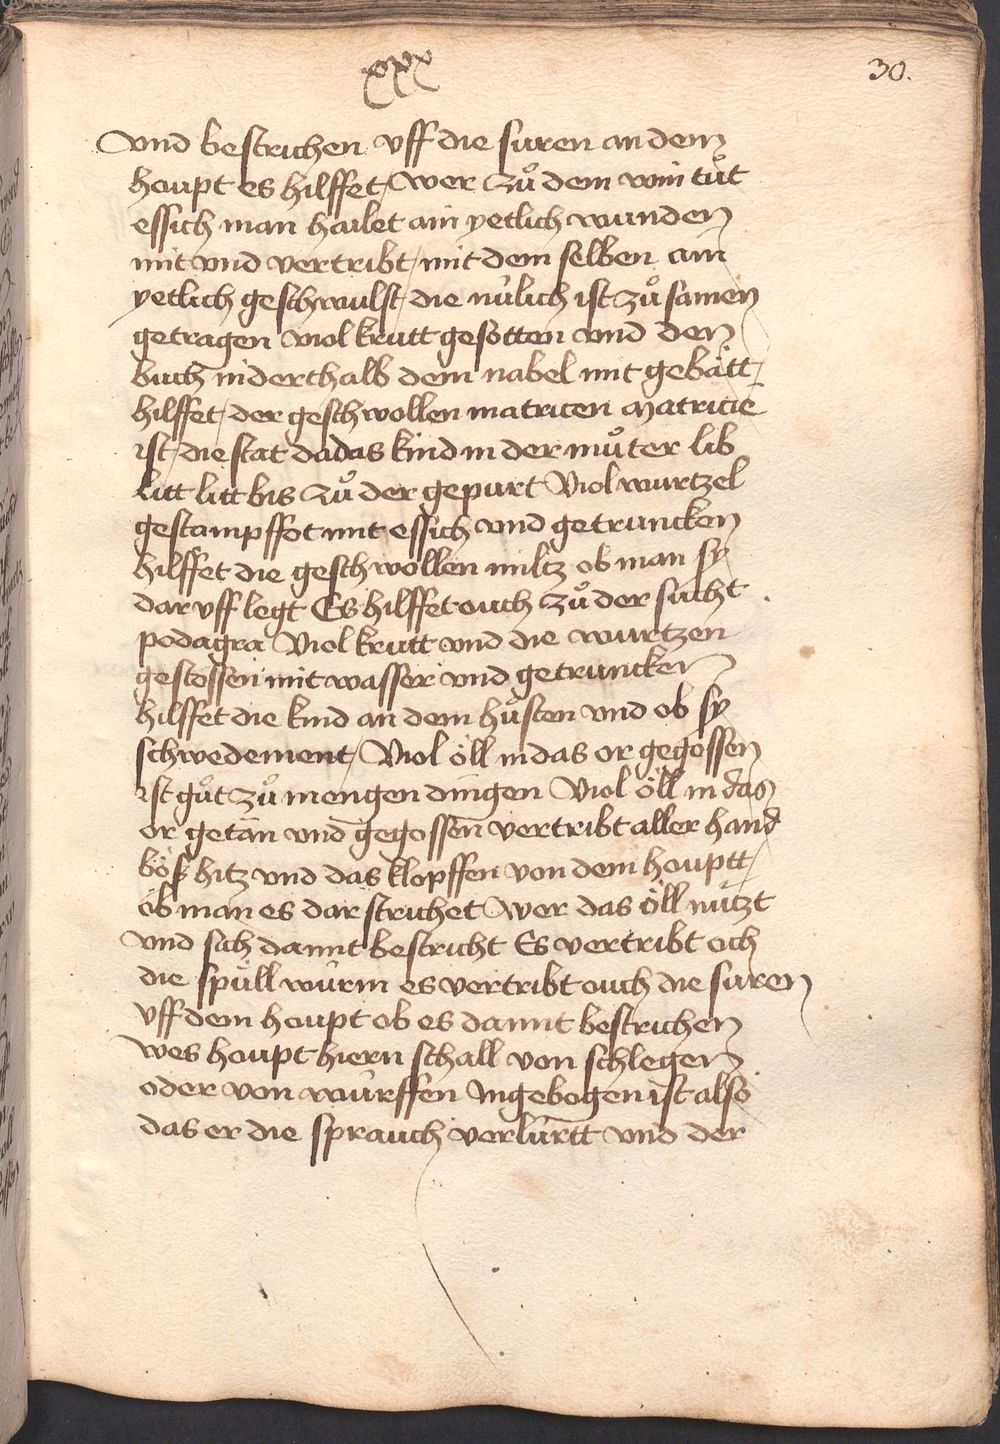 xxx
30.
vnd bestrichen vff die suren an dem
houpt es hilffet / wer zuͦ dem win tuͦt
essich man hailet ain yetlich wunden
mit vnd vertribt / mit dem selben ain
yetlich geschwulst / die nülich ist zuͦ samen
getragen viol krutt gesotten vnd den
buch inderthalb dem nabel mit gebätt /
hilffet / der geschwollen matricen Matricie
ist / die stat da das kind in der muͦter lib
litt litt bis zuͦ der gepurt Viol wurtzel
gestampffot mit essich vnd getruncken
hilffet die geschwollen miltz ob man sy
dar vff legt Es hilffet ouch zuͦ der sucht
podagra Viol krutt vnd die wurtzen
gestossen mit wasser vnd getruncken
hilffet die kind an dem huͦsten vnd ob sy
schwedement / Viol öll in das or gegossen
ist guͦt zuͦ mengen dingen Viol öll in das
or getān vnd gegossen vertribt aller hand
böß hitz vnd das klopffen von dem houptt /
ob man es dar strichet Wer das öll nützt
vnd sich damit bestricht Es vertribt och
die spüll würm es vertribt ouch die suren
vff dem houpt ob es damit bestrichen
wes houpt hiern schall von schlegen
oder von würffen Ingebogen ist also
das er die sprauch verlürtt vnd der